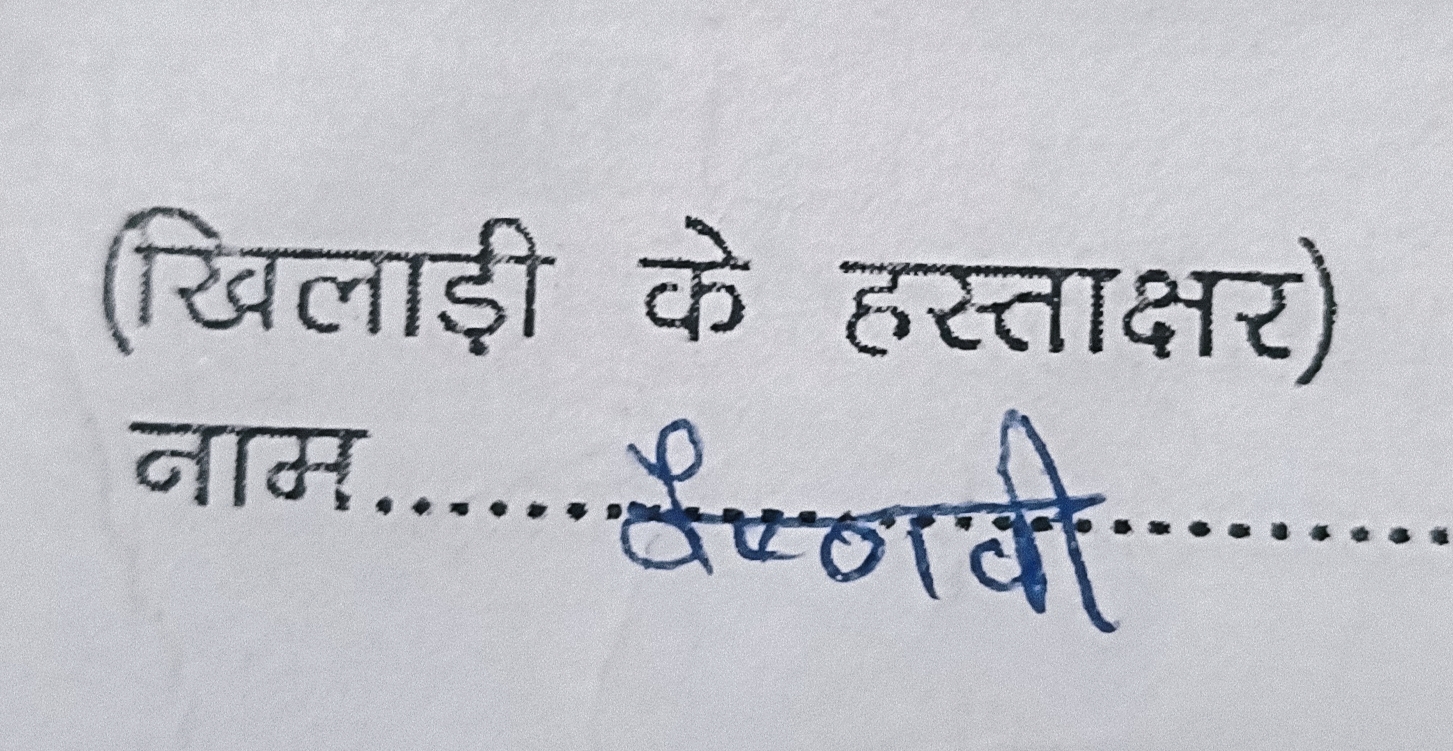 (खिलाड़ी के हस्ताक्षर)
नाम.......वैष्णवी.........